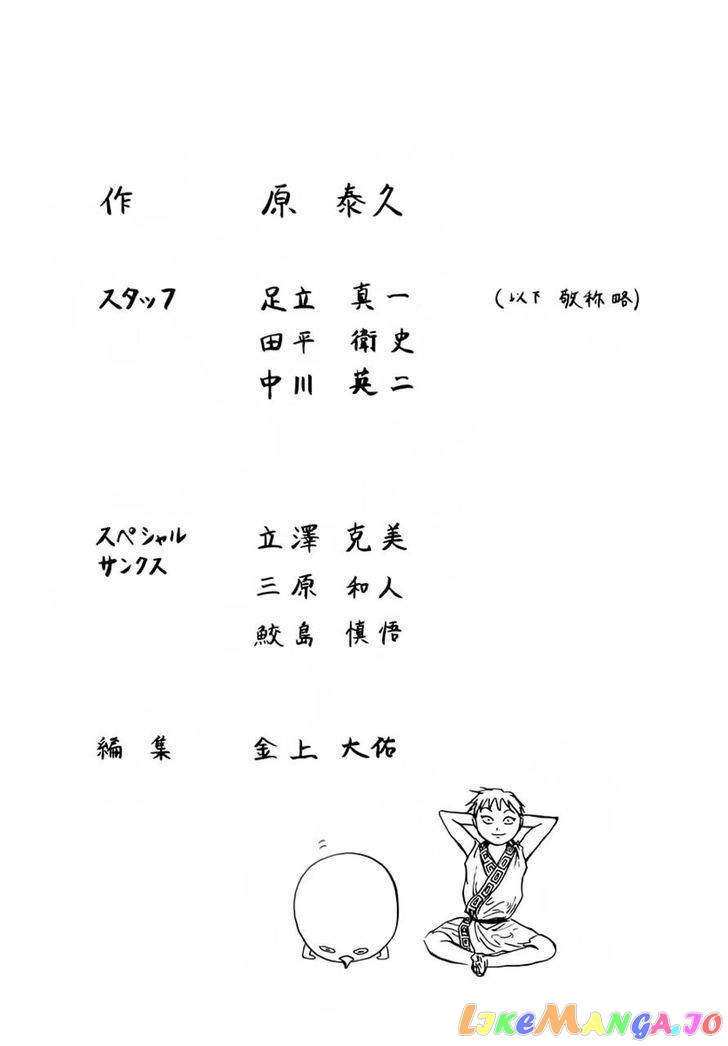 作 原 泰久
スタッフ 足立 真一 (以下 敬称略)
田平 衛史
中川 英二
スペシャル
サンクス
立澤 克美
三原 和人
鮫島 慎悟
編集 金上 大佑
LIKEMANGA.IO